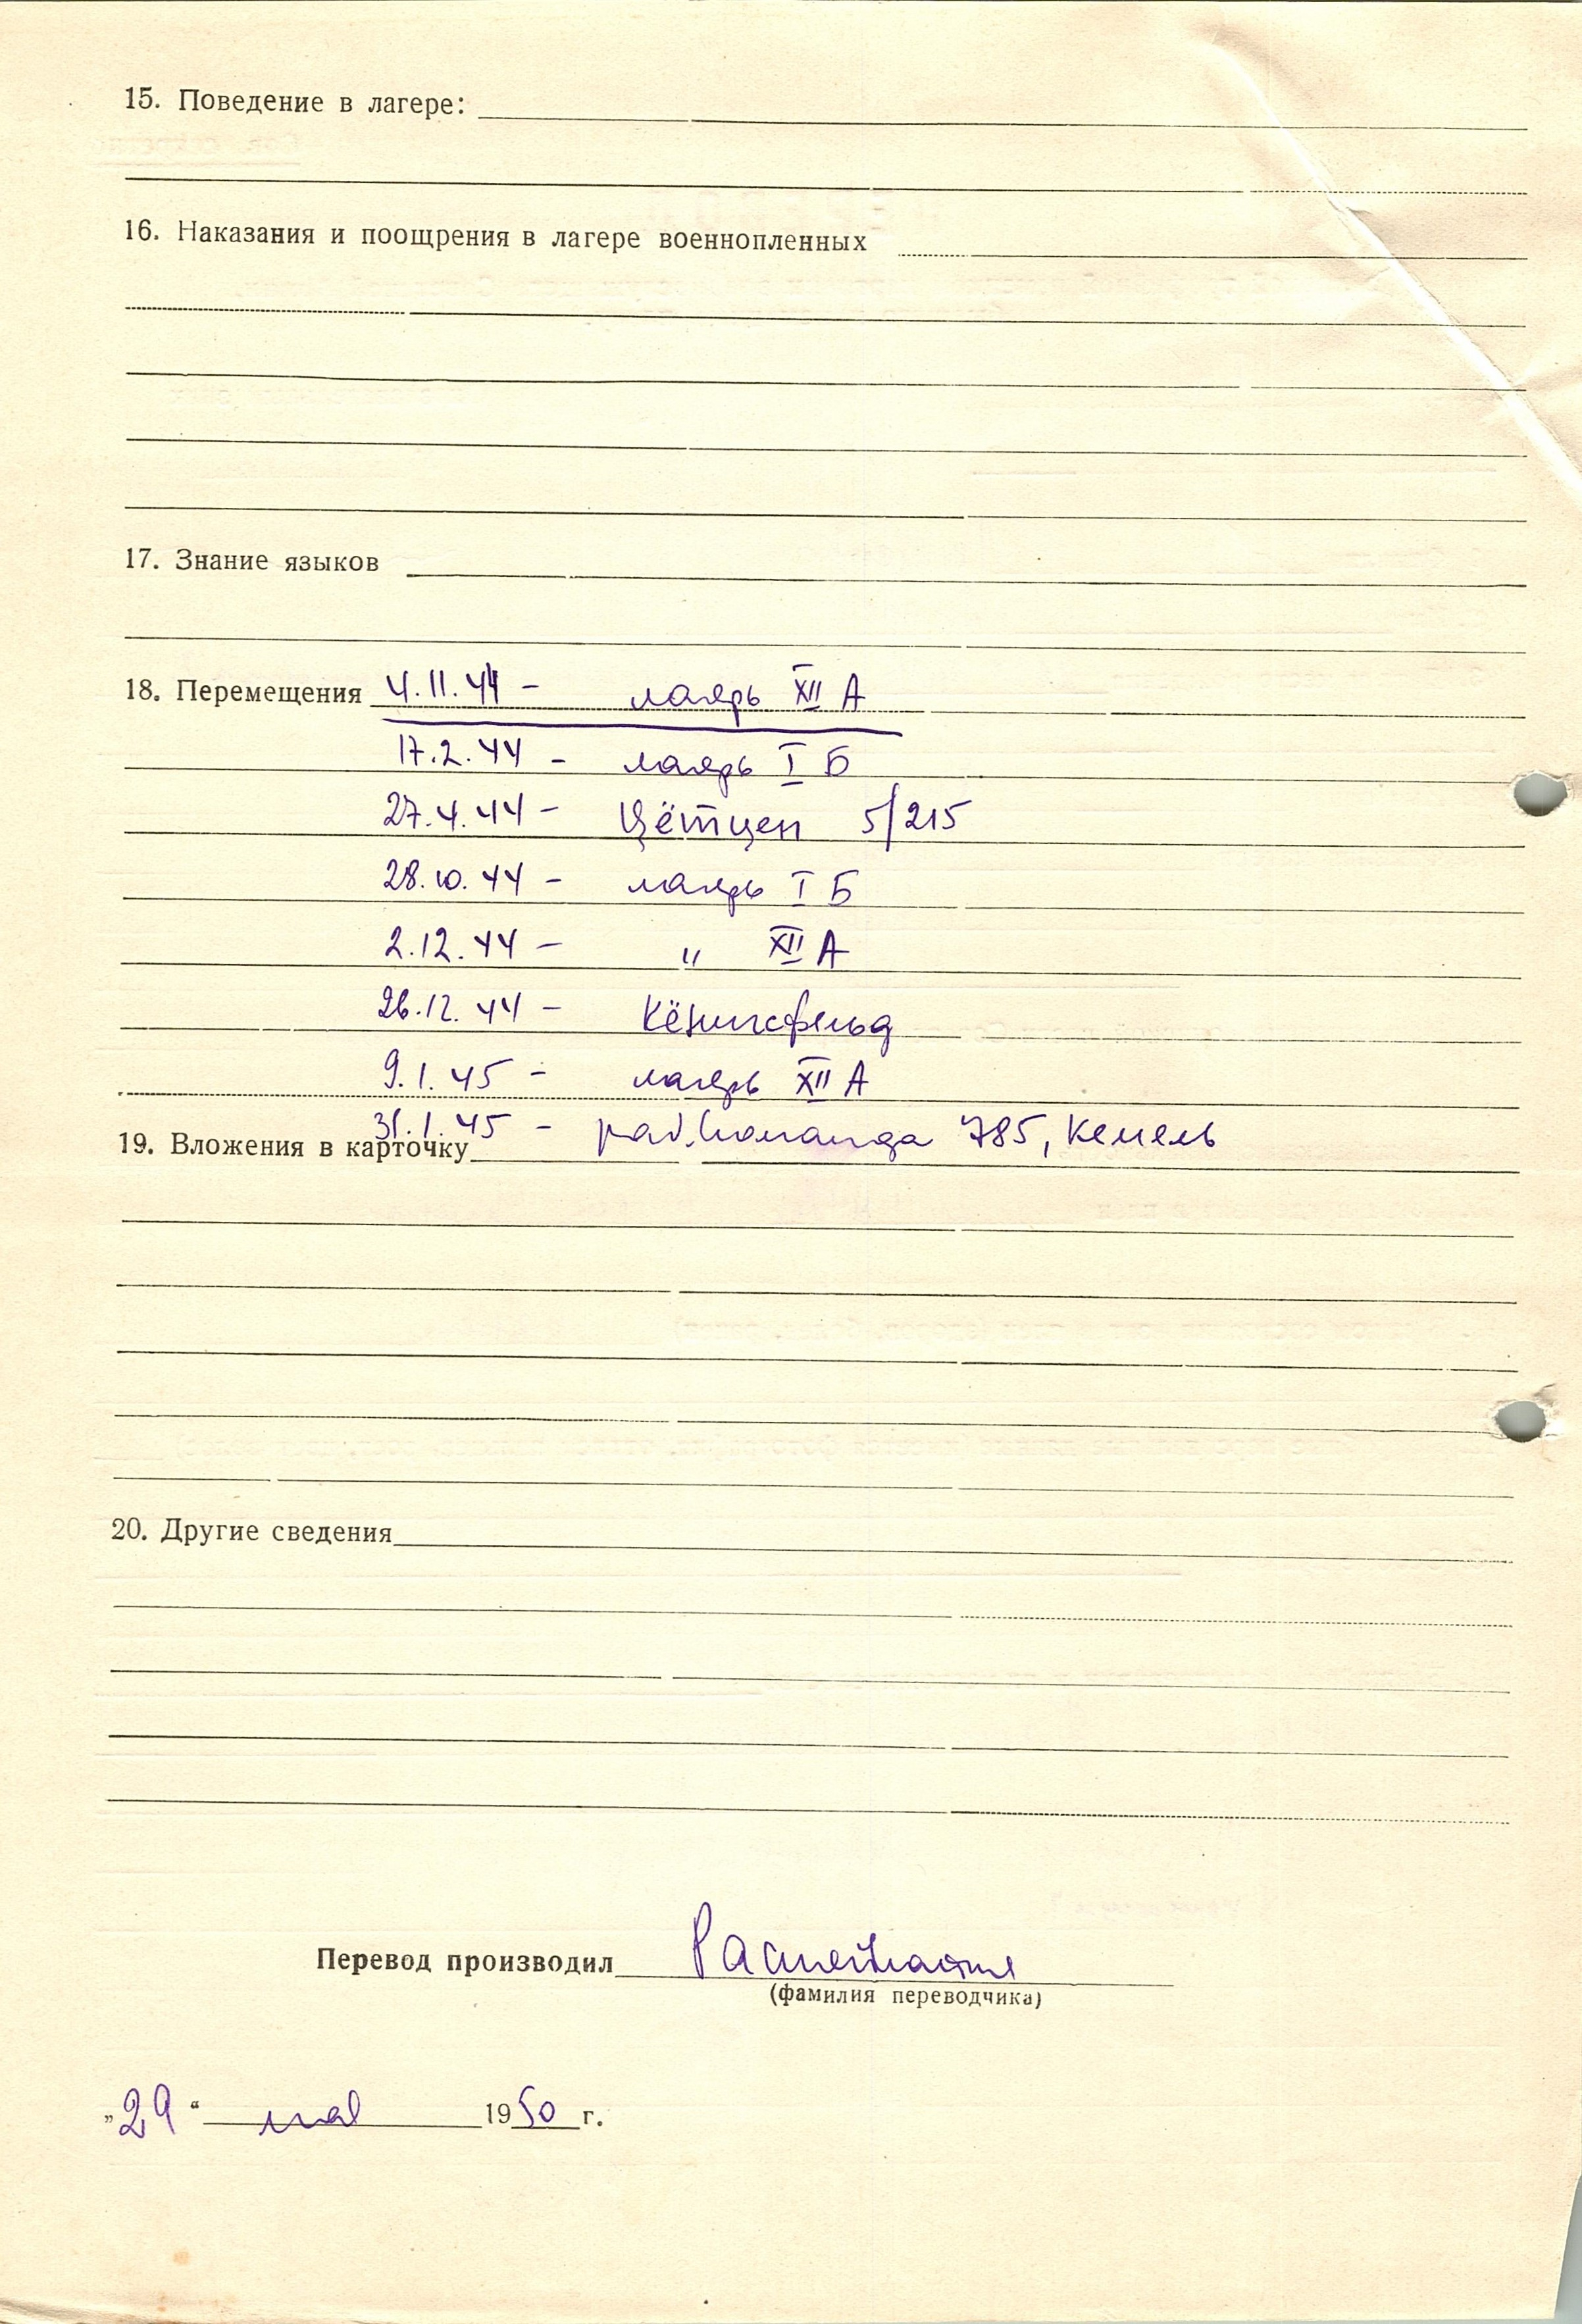 15. Поведение в лагере:
16. Наказания и поощрения в лагере военнопленных
17. Знание языков
18. Перемещения 4.11.44 - лагерь XII А
17.2.44 - лагерь I Б
27.4.44 - Цётцен 5/215
28.10.44 - лагерь I Б
2.12.44 - " XII А
26.12.44 - Кёнигсфельд
9.1.45 - лагерь XII А
31.1.45 - раб. команда 785, Кемель
19. Вложения в карточку
20. Другие сведения
Перевод производил
(фамилия переводчика)
„29“ мая 1950 г.